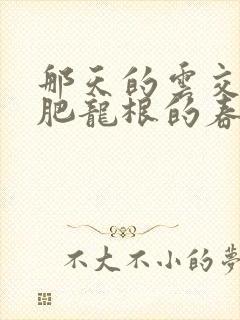 那天的雲交
肥龍根的春
不大不小的夢